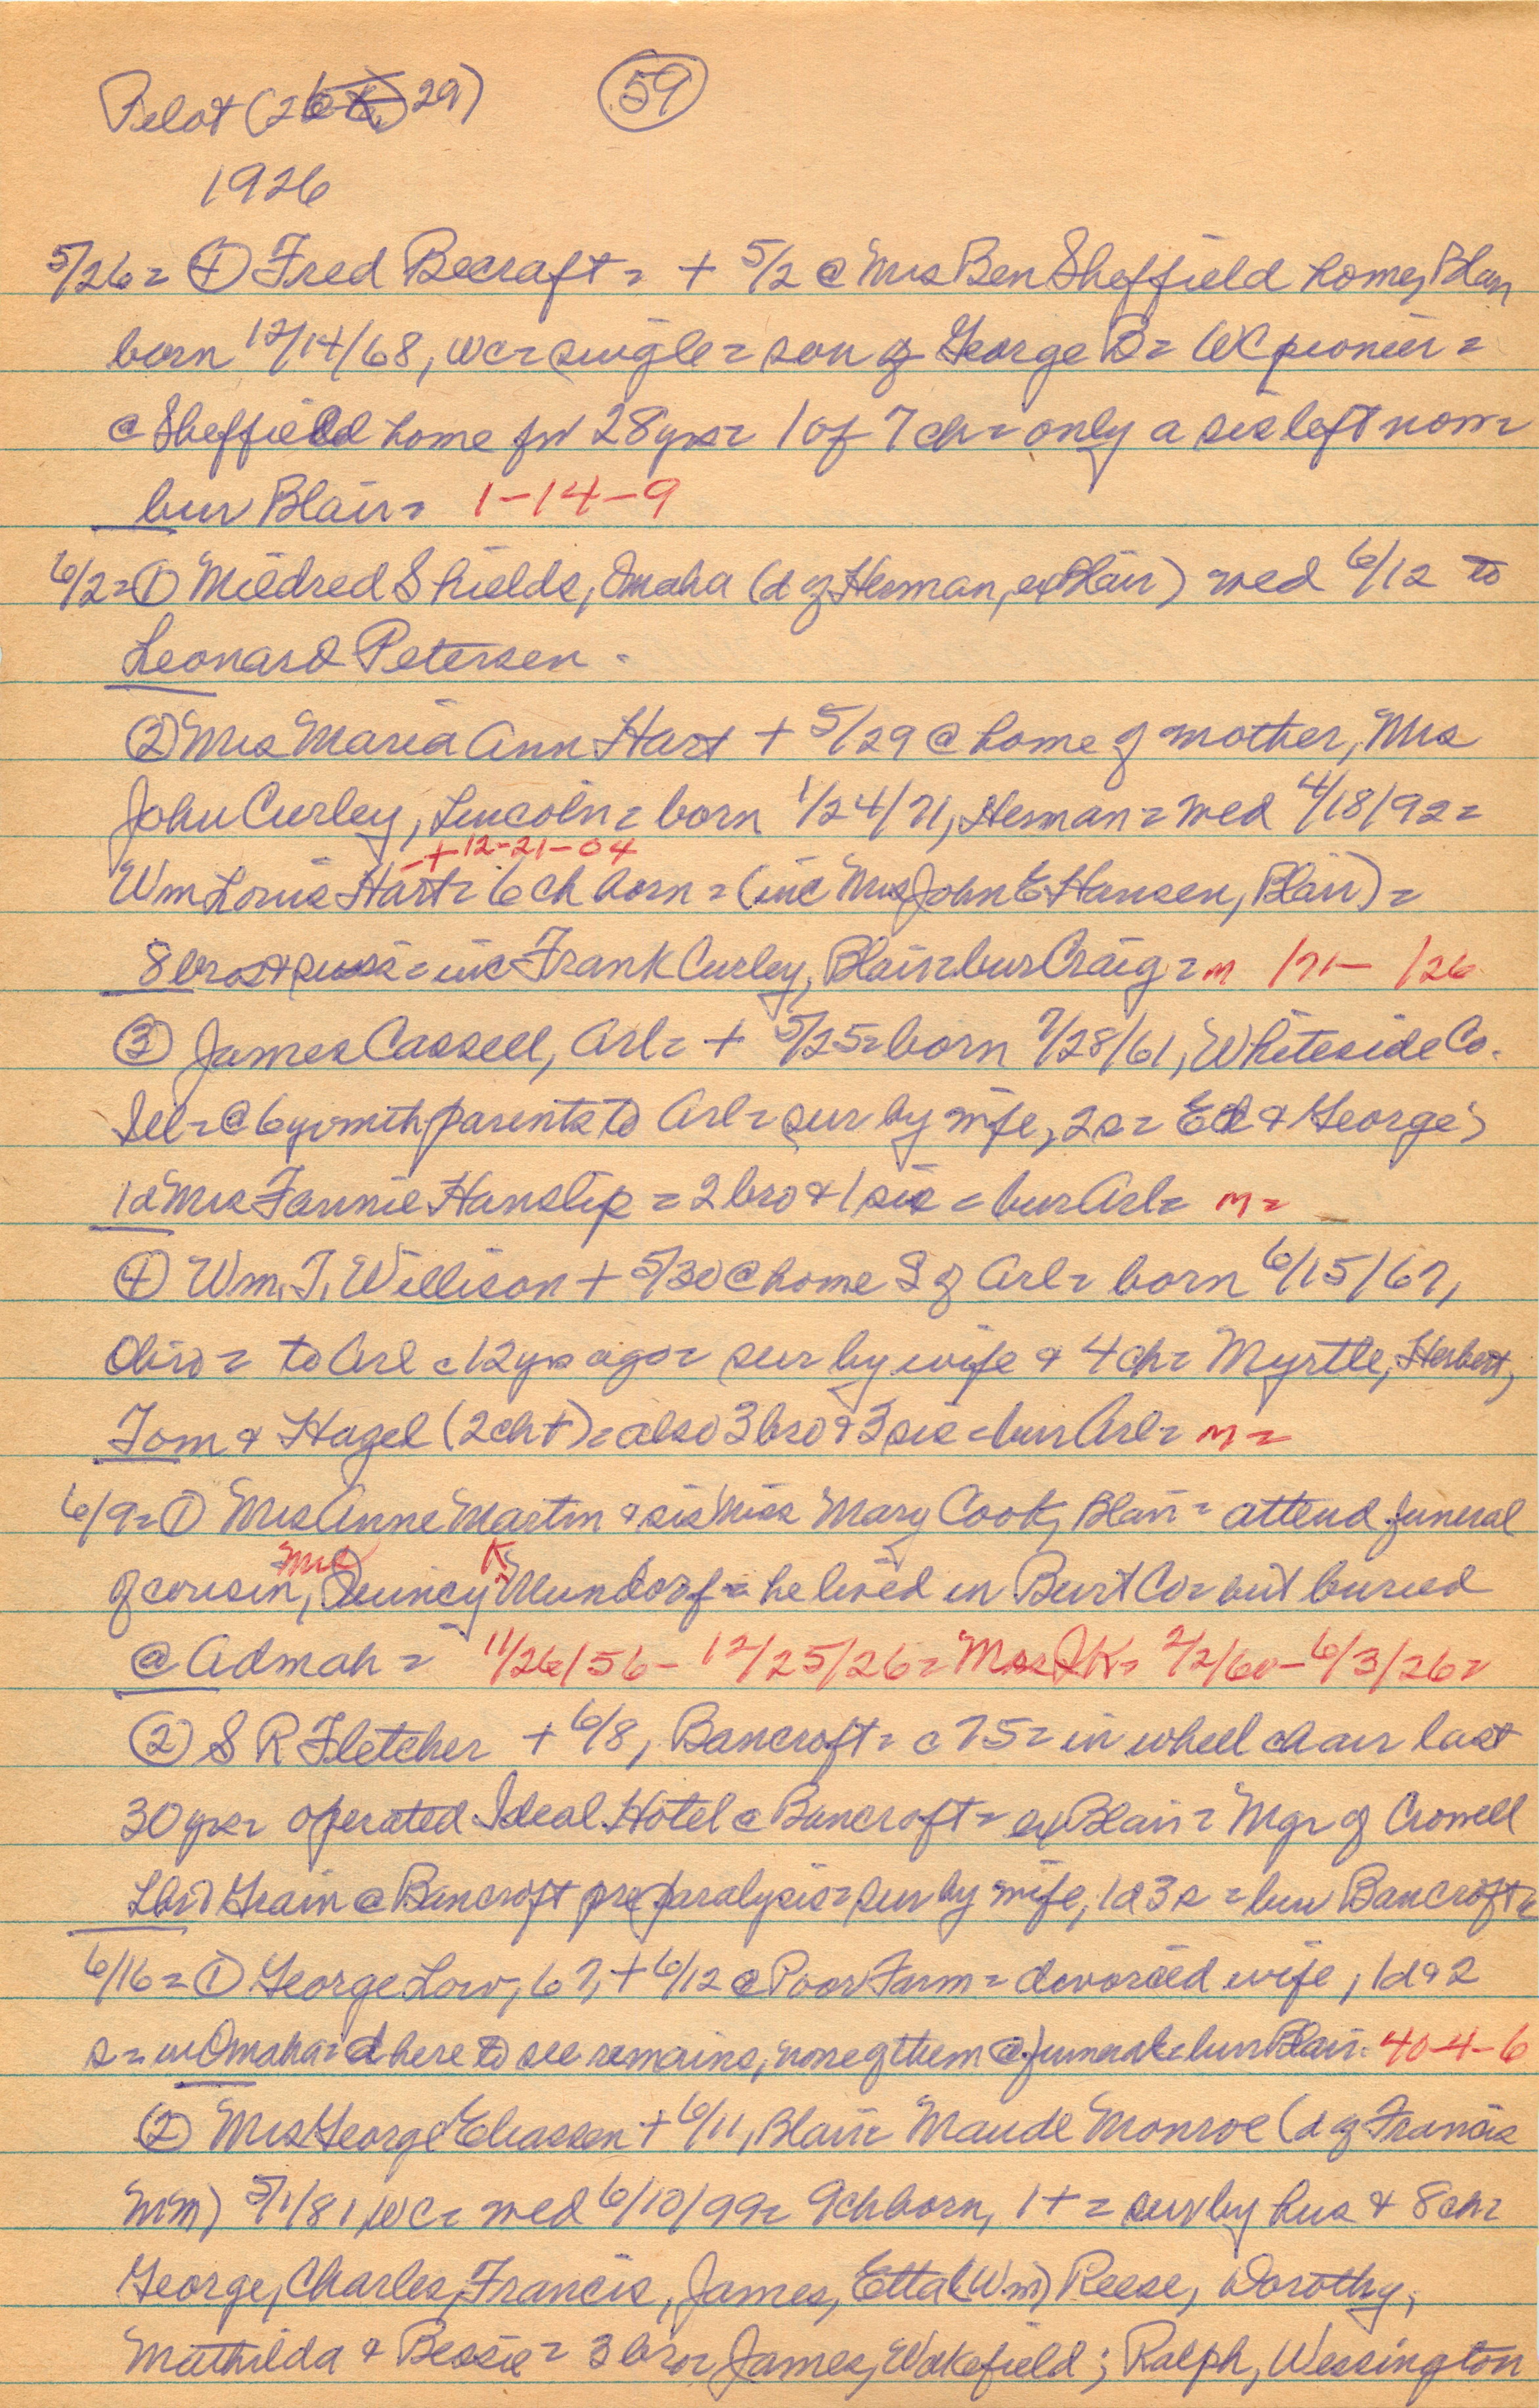 Pilot (26 29) 59
1926
5/26 = ④ Fred Becraft = + 5/2 @ Mrs Ben Sheffield home, Blair
born 12/14/68, WC = single = son of George B = WC pioneer =
@ Sheffield home for 28 yrs = 1 of 7 ch = only a sis left now =
bur Blair = 1-14-9
6/2 = ① Mildred Shields, Omaha (d of Herman, ex Blair) wed 6/12 to
Leonard Petersen.
② Mrs Maria Ann Hart + 5/29 @ home of mother, Mrs
John Curley, Lincoln = born 1/24/71, Herman = wed 4/18/92 =
-+12-21-04
Wm Louis Hart = 6 ch born = (inc Mrs John E Hansen, Blair) =
8 bros & sis = inc Frank Curley, Blair = bur Craig = m /71- /26
③ James Cassell, Arl = + 5/25 = born 7/28/61, Whiteside Co.
Ill = @ 6 yr with parents to Arl = sur by wife, 2 s = Ed & George;
1 d Mrs Fannie Hanslip = 2 bro & 1 sis = bur Arl = m =
④ Wm. T. Willison + 5/30 @ home S of Arl = born 6/15/67,
Ohio = to Arl c 12 yrs ago = sur by wife & 4 ch = Myrtle, Herbert,
Tom & Hazel (2 ch +) = also 3 bro & 3 sis = bur Arl = m =
6/9 = ① Mrs Anne Martin & sis Miss Mary Cook, Blair = attend funeral
Mrs K
of cousin, Quincy Mundorf = he lived in Burt Co = but buried
@ Admah = 11/26/56 - 12/25/26 = Mrs QK = 2/2/60 - 6/3/26 =
② S R Fletcher + 6/8, Bancroft = c 75 = in wheel chair last
30 yrs = operated Ideal Hotel @ Bancroft = ex Blair = Mgr of Crowell
Lbr & Grain @ Bancroft pre paralysis = sur by wife, 1 d 3 s = bur Bancroft =
6/16 = ① George Low, 67, + 6/12 @ Poor Farm = divorced wife, 1 d & 2
s = in Omaha = d here to see remains, none of them @ funeral = bur Blair. 40-4-6
② Mrs George Eliassen + 6/11, Blair = Maude Monroe (d of Francis
MM) 5/1/81, WC = wed 6/10/99 = 9 ch born, 1 + = sur by hus & 8 ch =
George, Charles, Francis, James, Etta (Wm) Reese, Dorothy,
Mathilda & Bessie = 3 bro = James, Wakefield; Ralph, Wessington